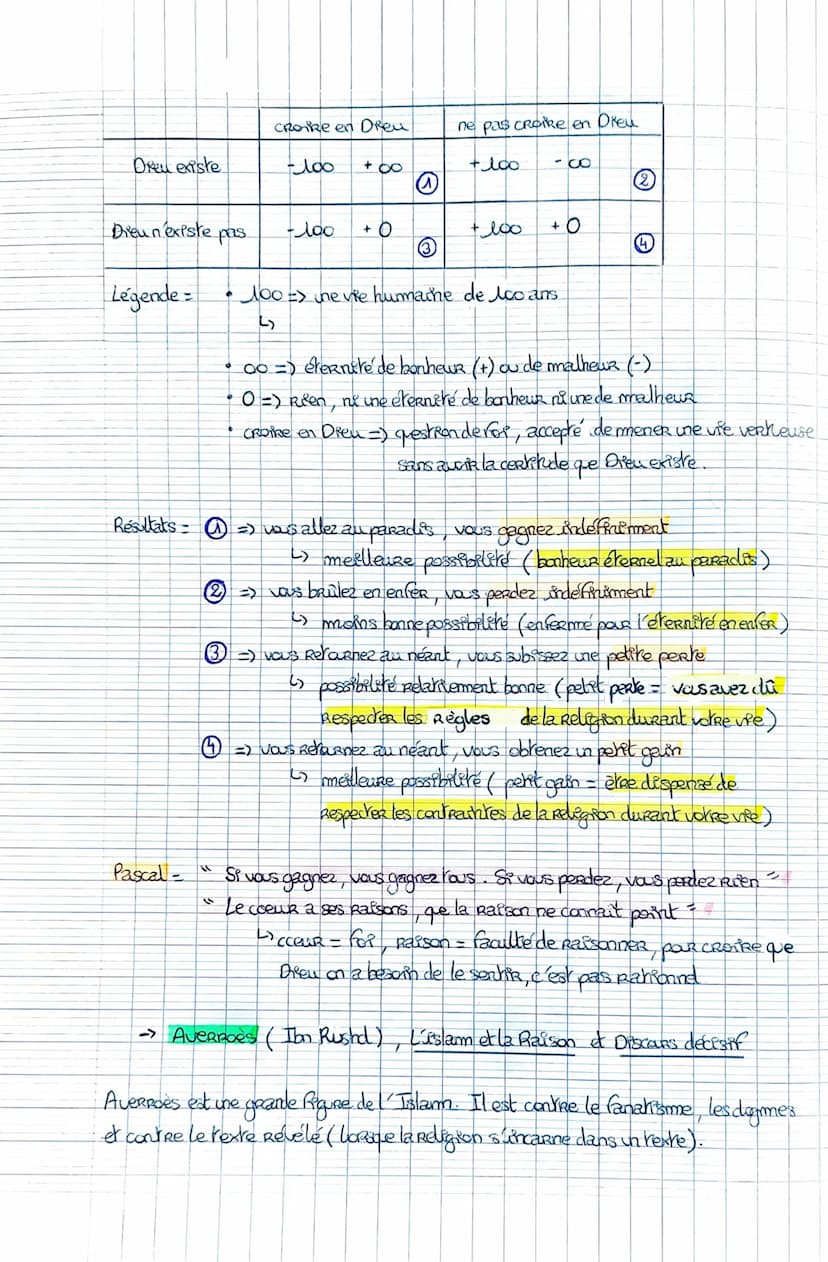 croire en Dieu ne pas croire en Dieu
Dieu existe -100 +∞ ① +100 -∞ ②
Dieu n'existe pas -100 +0 ③ +100 +0 ④
Légende = • 100 => une vie humaine de 100 ans
↳
• ∞ => éternité de bonheur (+) ou de malheur (-)
• 0 => Rien, ni une éternité de bonheur ni une de malheur
• croire en Dieu => question de foi, accepté de mener une vie vertueuse
sans avoir la certitude que Dieu existe.
Résultats = ① => vous allez au paradis, vous gagnez indéfiniment
↳ meilleure possibilité (bonheur éternel au paradis)
② => vous brûlez en enfer, vous perdez indéfiniment
↳ moins bonne possibilité (enfermé pour l'éternité en enfer)
③ => vous retournez au néant, vous subissez une petite perte
↳ possibilité relativement bonne (petit perte = vous avez dû
respecter les règles de la religion durant votre vie)
④ => vous retournez au néant, vous obtenez un petit gain
↳ meilleure possibilité (petit gain = être dispensé de
respecter les contraintes de la religion durant votre vie)
Pascal = " Si vous gagnez, vous gagnez tous. Si vous perdez, vous perdez rien "
" Le coeur a ses raisons, que la raison ne connait point "
↳ coeur = foi, raison = faculté de raisonner, pour croire que
Dieu on a besoin de le sentir, c'est pas rationnel
→ Averroès (Ibn Rushd), L'islam et la Raison et Discours décisif
Averroès est une grande figure de l'Islam. Il est contre le fanatisme, les dogmes
et contre le texte révélé (lorsque la religion s'incarne dans un texte).